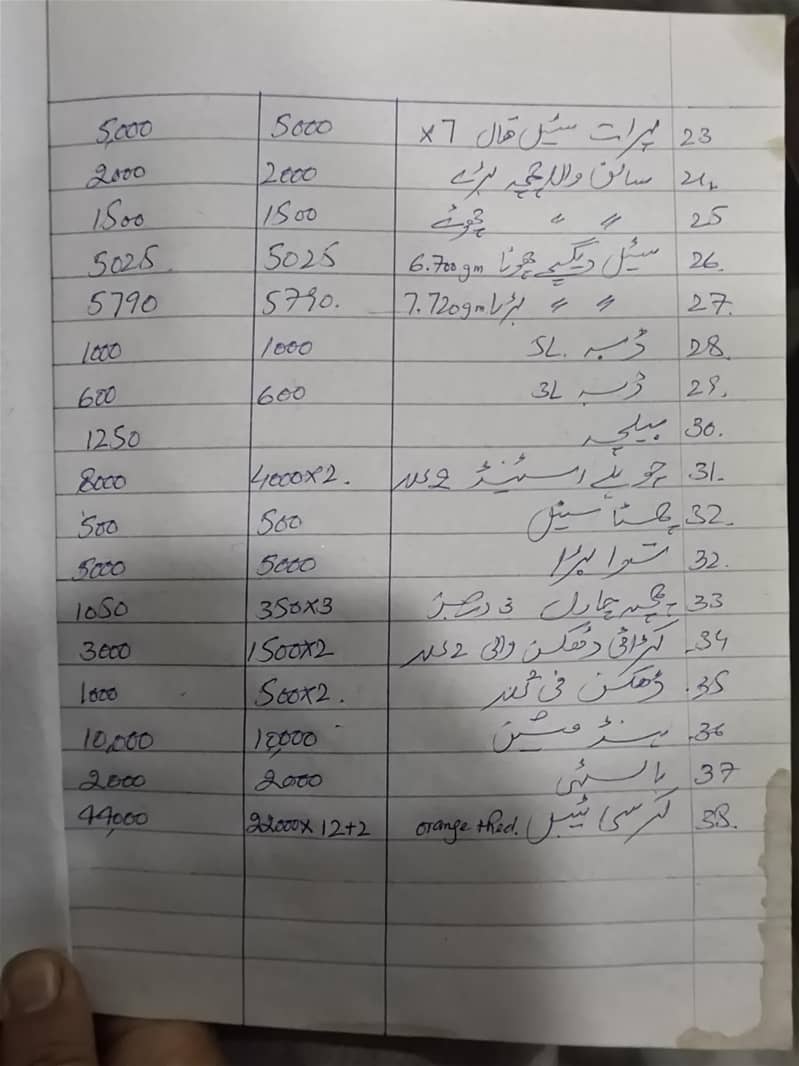 23 پرات سٹیل تھال x7 5000 5,000
24. سالن والا چمچہ بڑے 2000 2000
25 〃 〃 چھوٹے 1500 1500
26. سٹیل دیگچے چھوٹا 6.700gm 5025 5025
27. 〃 〃 بڑا 7.720gm 5790. 5790
28. ڈبہ 5L. 1000 1000
29. ڈبہ 3L 600 600
30. بیلچہ 1250
31. چولہے اسٹینڈ 2 عدد 4000x2. 8000
32. چمٹا سٹیل 500 500
32. توا بڑا 5000 5000
33 چمچہ چاول 3 درجن 350x3 1050
34. کڑاہی ڈھکن والی 2 عدد 1500x2 3000
35. ڈھکن فی عدد 500x2. 1000
36. ہنڈ مشین 10,000 10,000
37 بالٹی 2000 2000
38. کرسی ٹیبل orange + Red. 22000x12+2 44,000